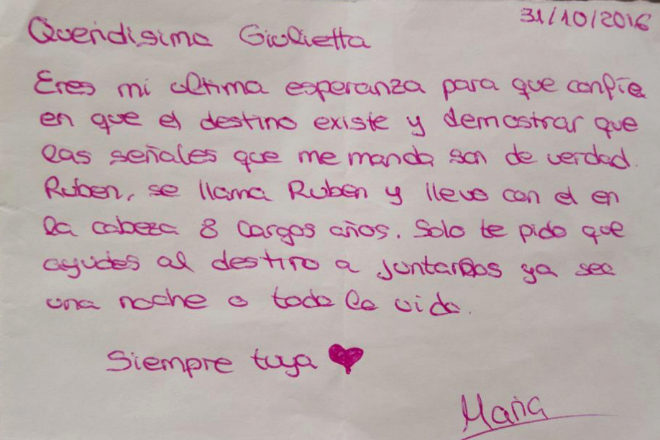 31/10/2016
Queridisima Giulietta
Eres mi ultima esperanza para que confíe
en que el destino existe y demostrar que
las señales que me manda son de verdad.
Ruben, se llama Ruben y llevo con el en
la cabeza 8 largos años. Solo te pido que
ayudes al destino a juntarnos ya sea
una noche o toda la vida.
Siempre tuya ♥
Maria